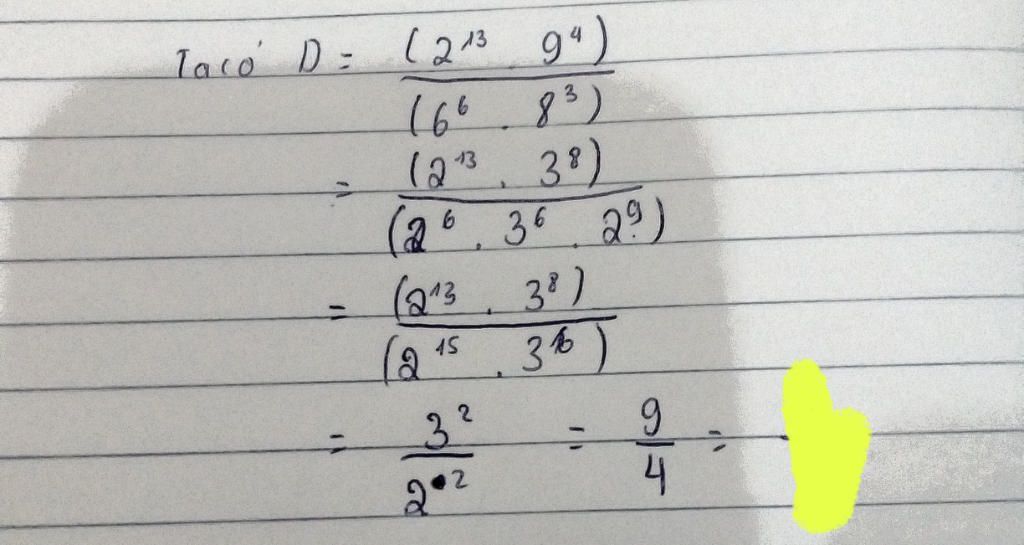 Ta có D = (2¹³ . 9⁴) / (6⁶ . 8³)
= (2¹³ . 3⁸) / (2⁶ . 3⁶ . 2⁹)
= (2¹³ . 3⁸) / (2¹⁵ . 3⁶)
= 3² / 2² = 9 / 4 =